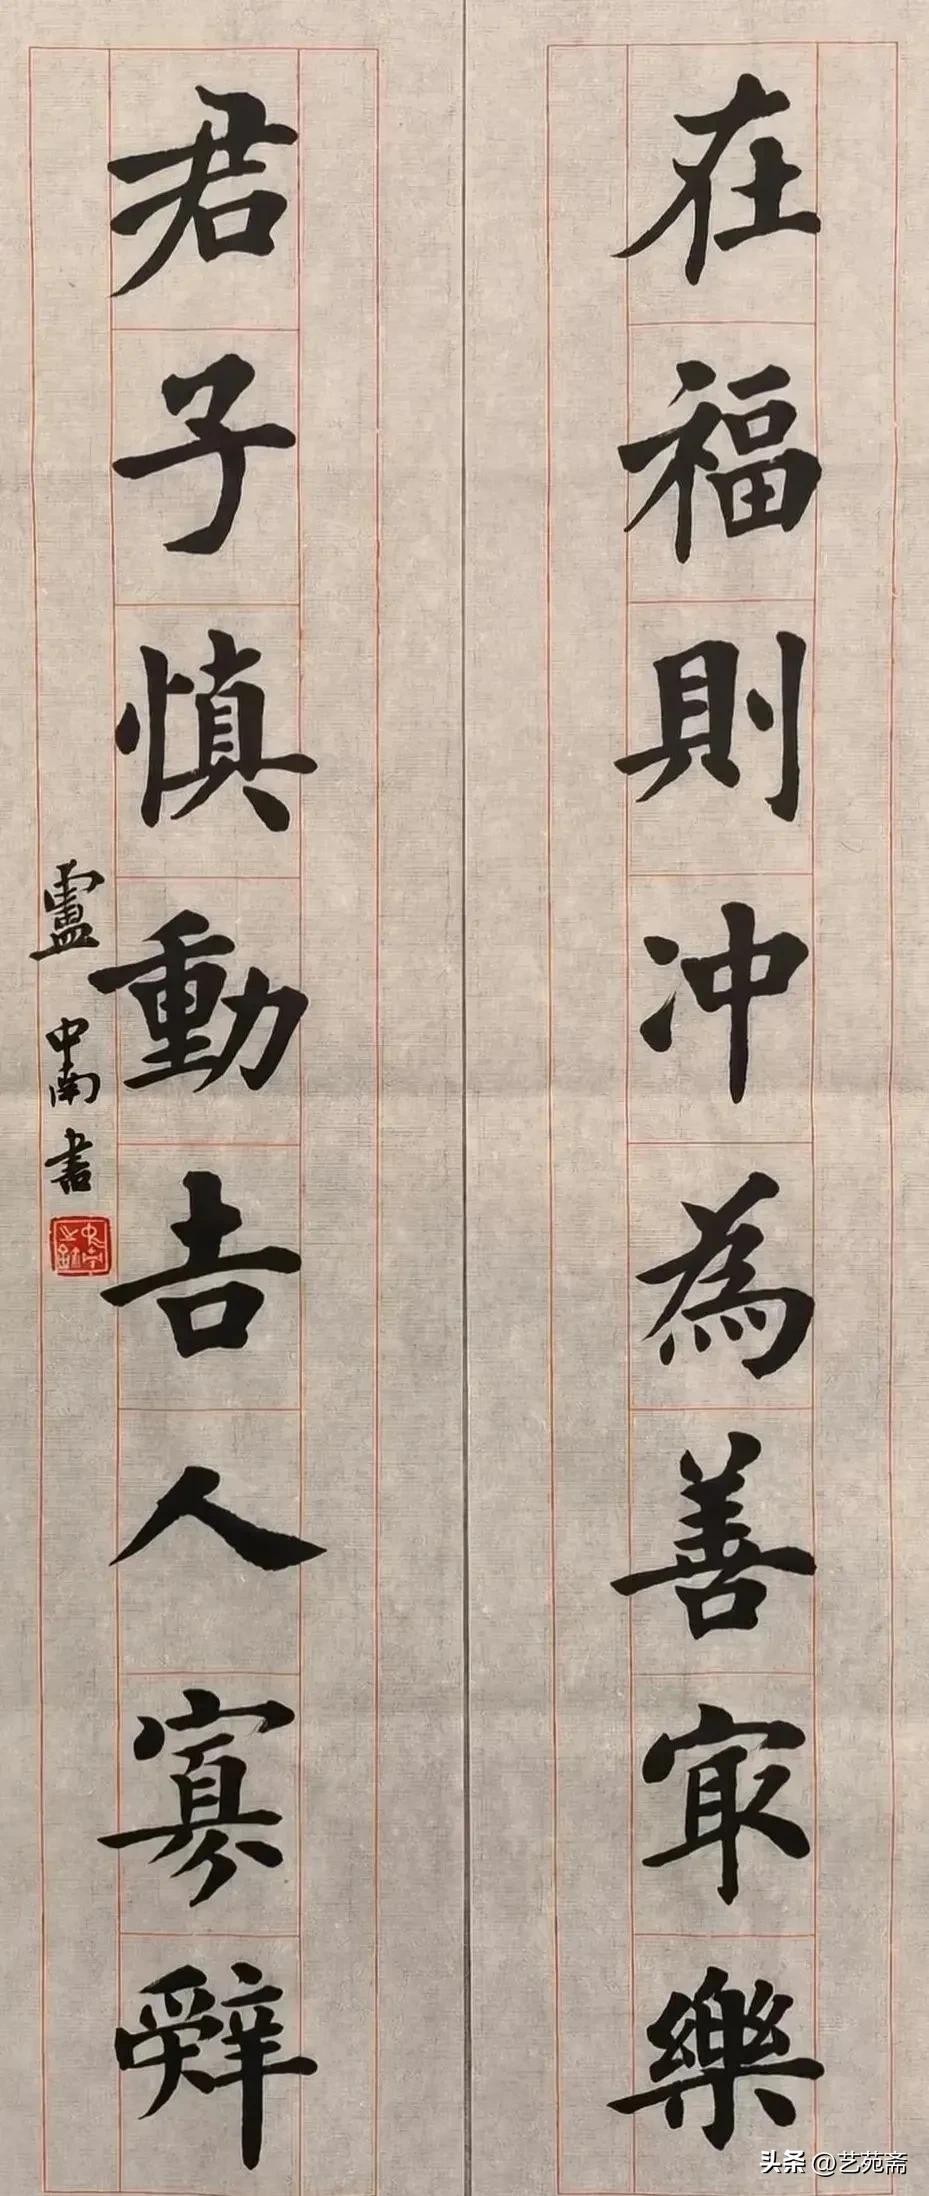 在福則冲為善冣樂
君子慎動吉人寡辭
盧中南書
头条 @艺苑斋